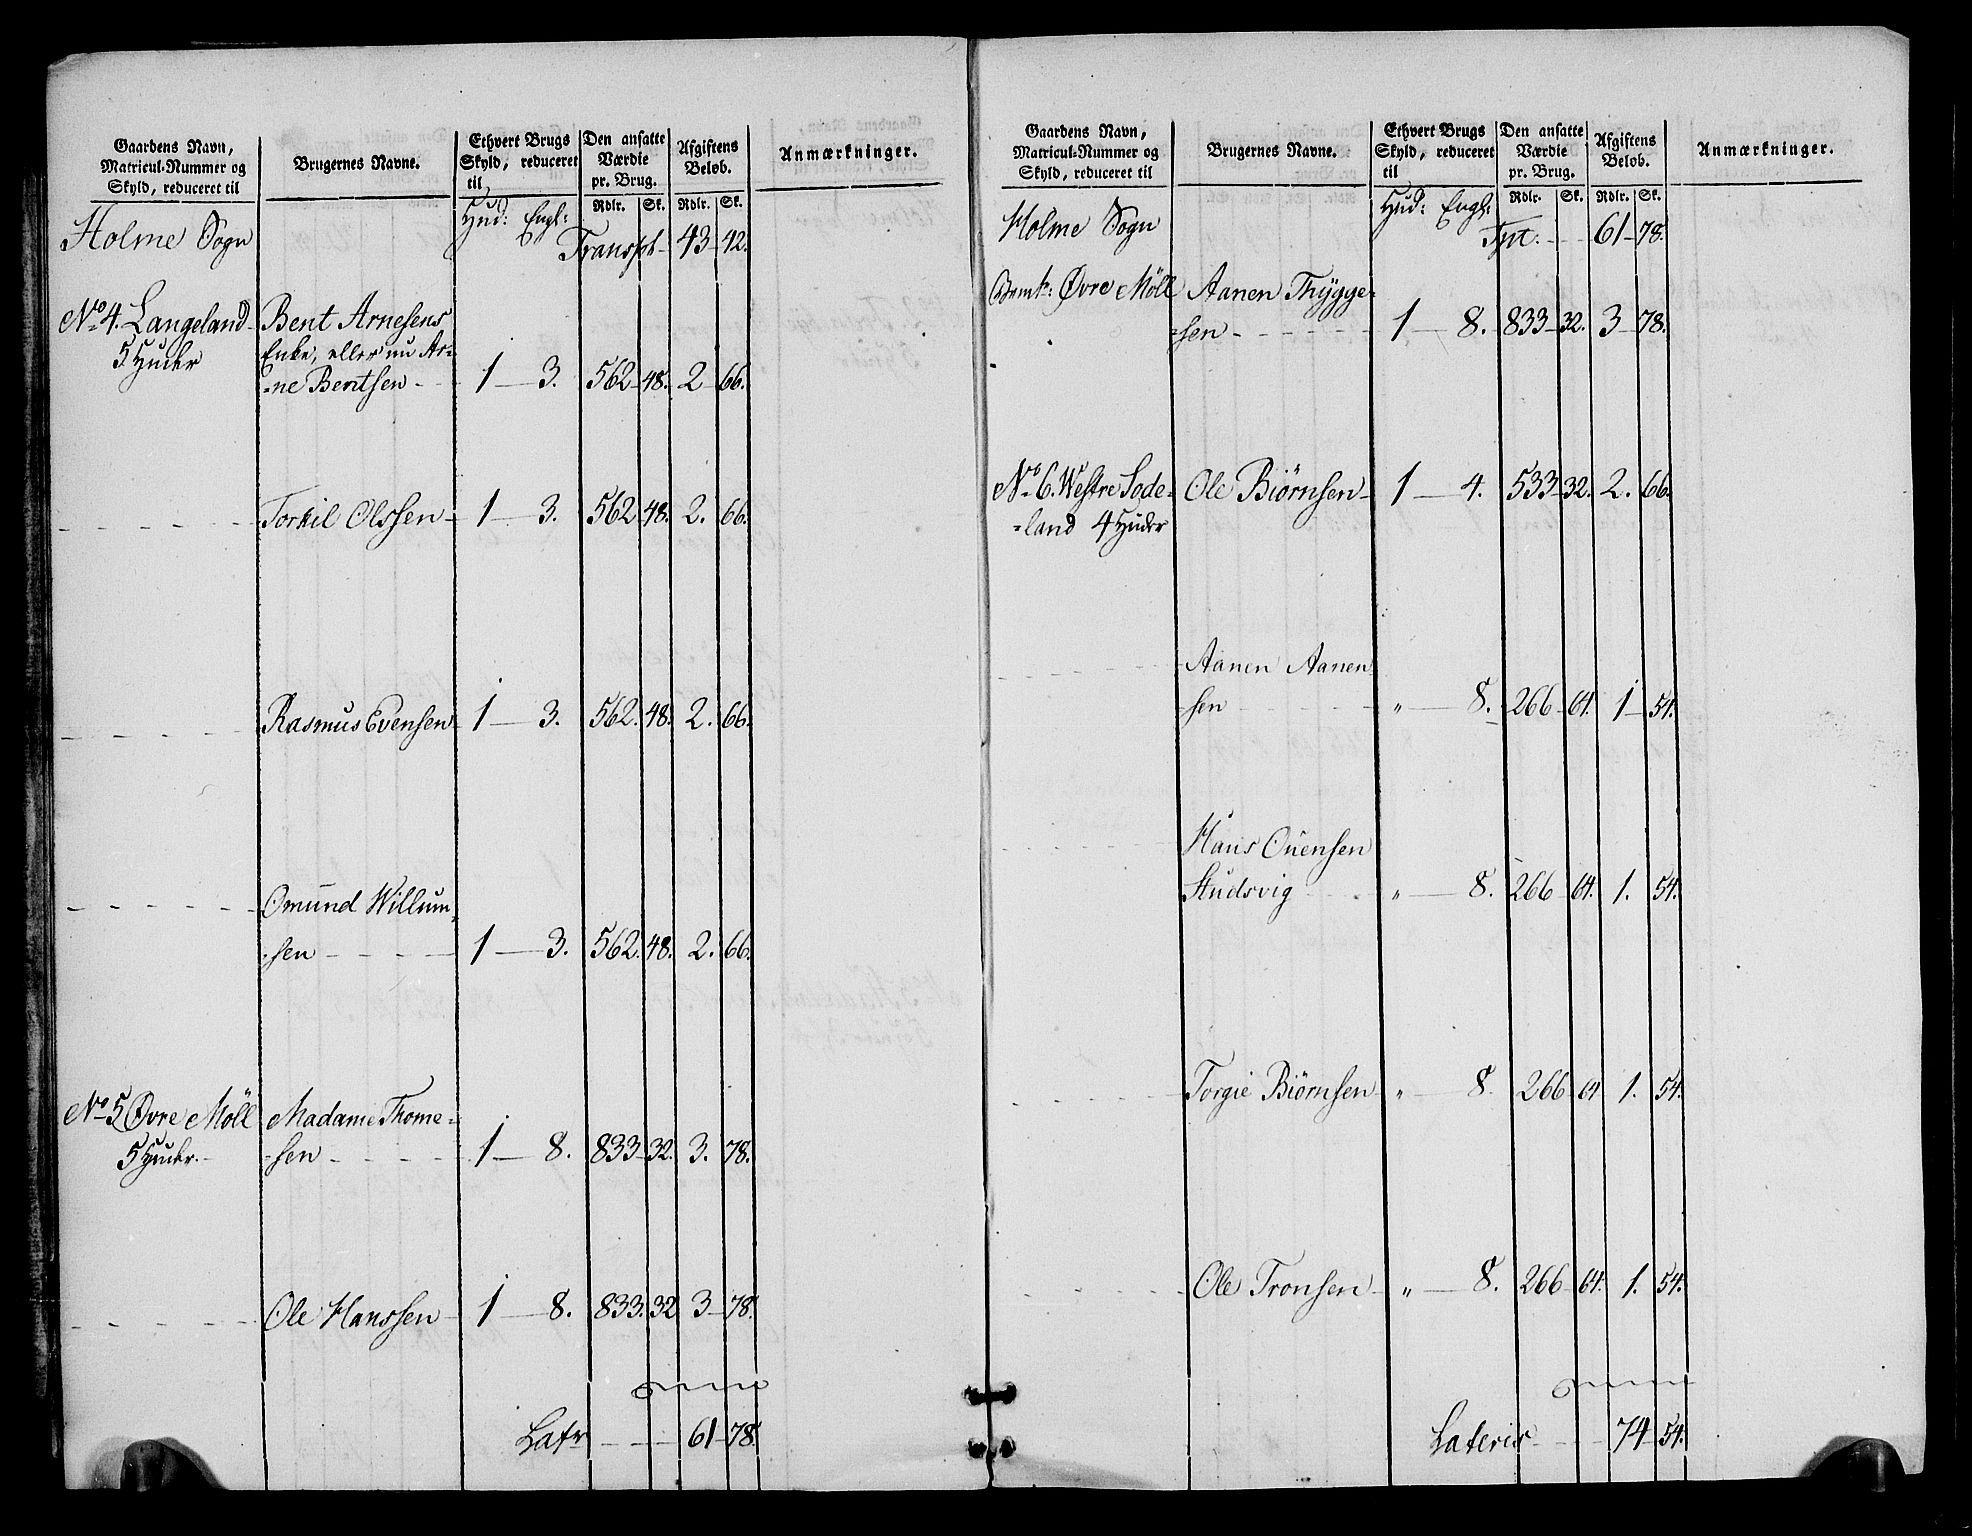 Gaardens Navn, Matricul-Nummer og Skyld, reduceret til | Brugernes Navne. | Ethvert Brugs Skyld, reduceret til | Den ansatte Værdie pr. Brug. | Afgiftens Beløb. | Anmærkninger.
Rdlr. Sk. Rdlr. Sk.
Holme Sogn Hud: Engl:
Transpt 43 42.
No 4. Langeland Bent Arnesens
5 Huder Enke, eller nu Ar-
=ne Bentsen 1 3. 562 48. 2 66.
Torkil Olssen 1 3. 562 48. 2. 66.
Rasmus Evensen 1 3. 562. 48. 2. 66.
Omund Willum-
=sen 1 3. 562. 48. 2. 66.
No 5 Øvre Möll Madame Thome=
5 Huder. =sen 1 8. 833 32. 3. 78.
Ole Hanssen 1 8. 833. 32 3 78.
Latr 61 78.
Gaardens Navn, Matricul-Nummer og Skyld, reduceret til | Brugernes Navne. | Ethvert Brugs Skyld, reduceret til | Den ansatte Værdie pr. Brug. | Afgiftens Beløb. | Anmærkninger.
Rdlr. Sk. Rdlr. Sk.
Holme Sogn Hud: Engl:
Tpt. 61 78.
Øvre Möll Aanen Thygge=
=sen 1 8. 833 32. 3 78.
No 6. Westre Sode= Ole Biørnsen 1 4. 533 32. 2. 66.
=land 4 Huder
Aanen Aanen
sen " 8. 266 64. 1 54.
Hans Ouensen
Studsvig " 8. 266 64. 1. 54.
Torgie Biørnsen " 8. 266 64 1. 54.
Ole Tronsen " 8. 266 64. 1. 54.
Lateris 74 54.